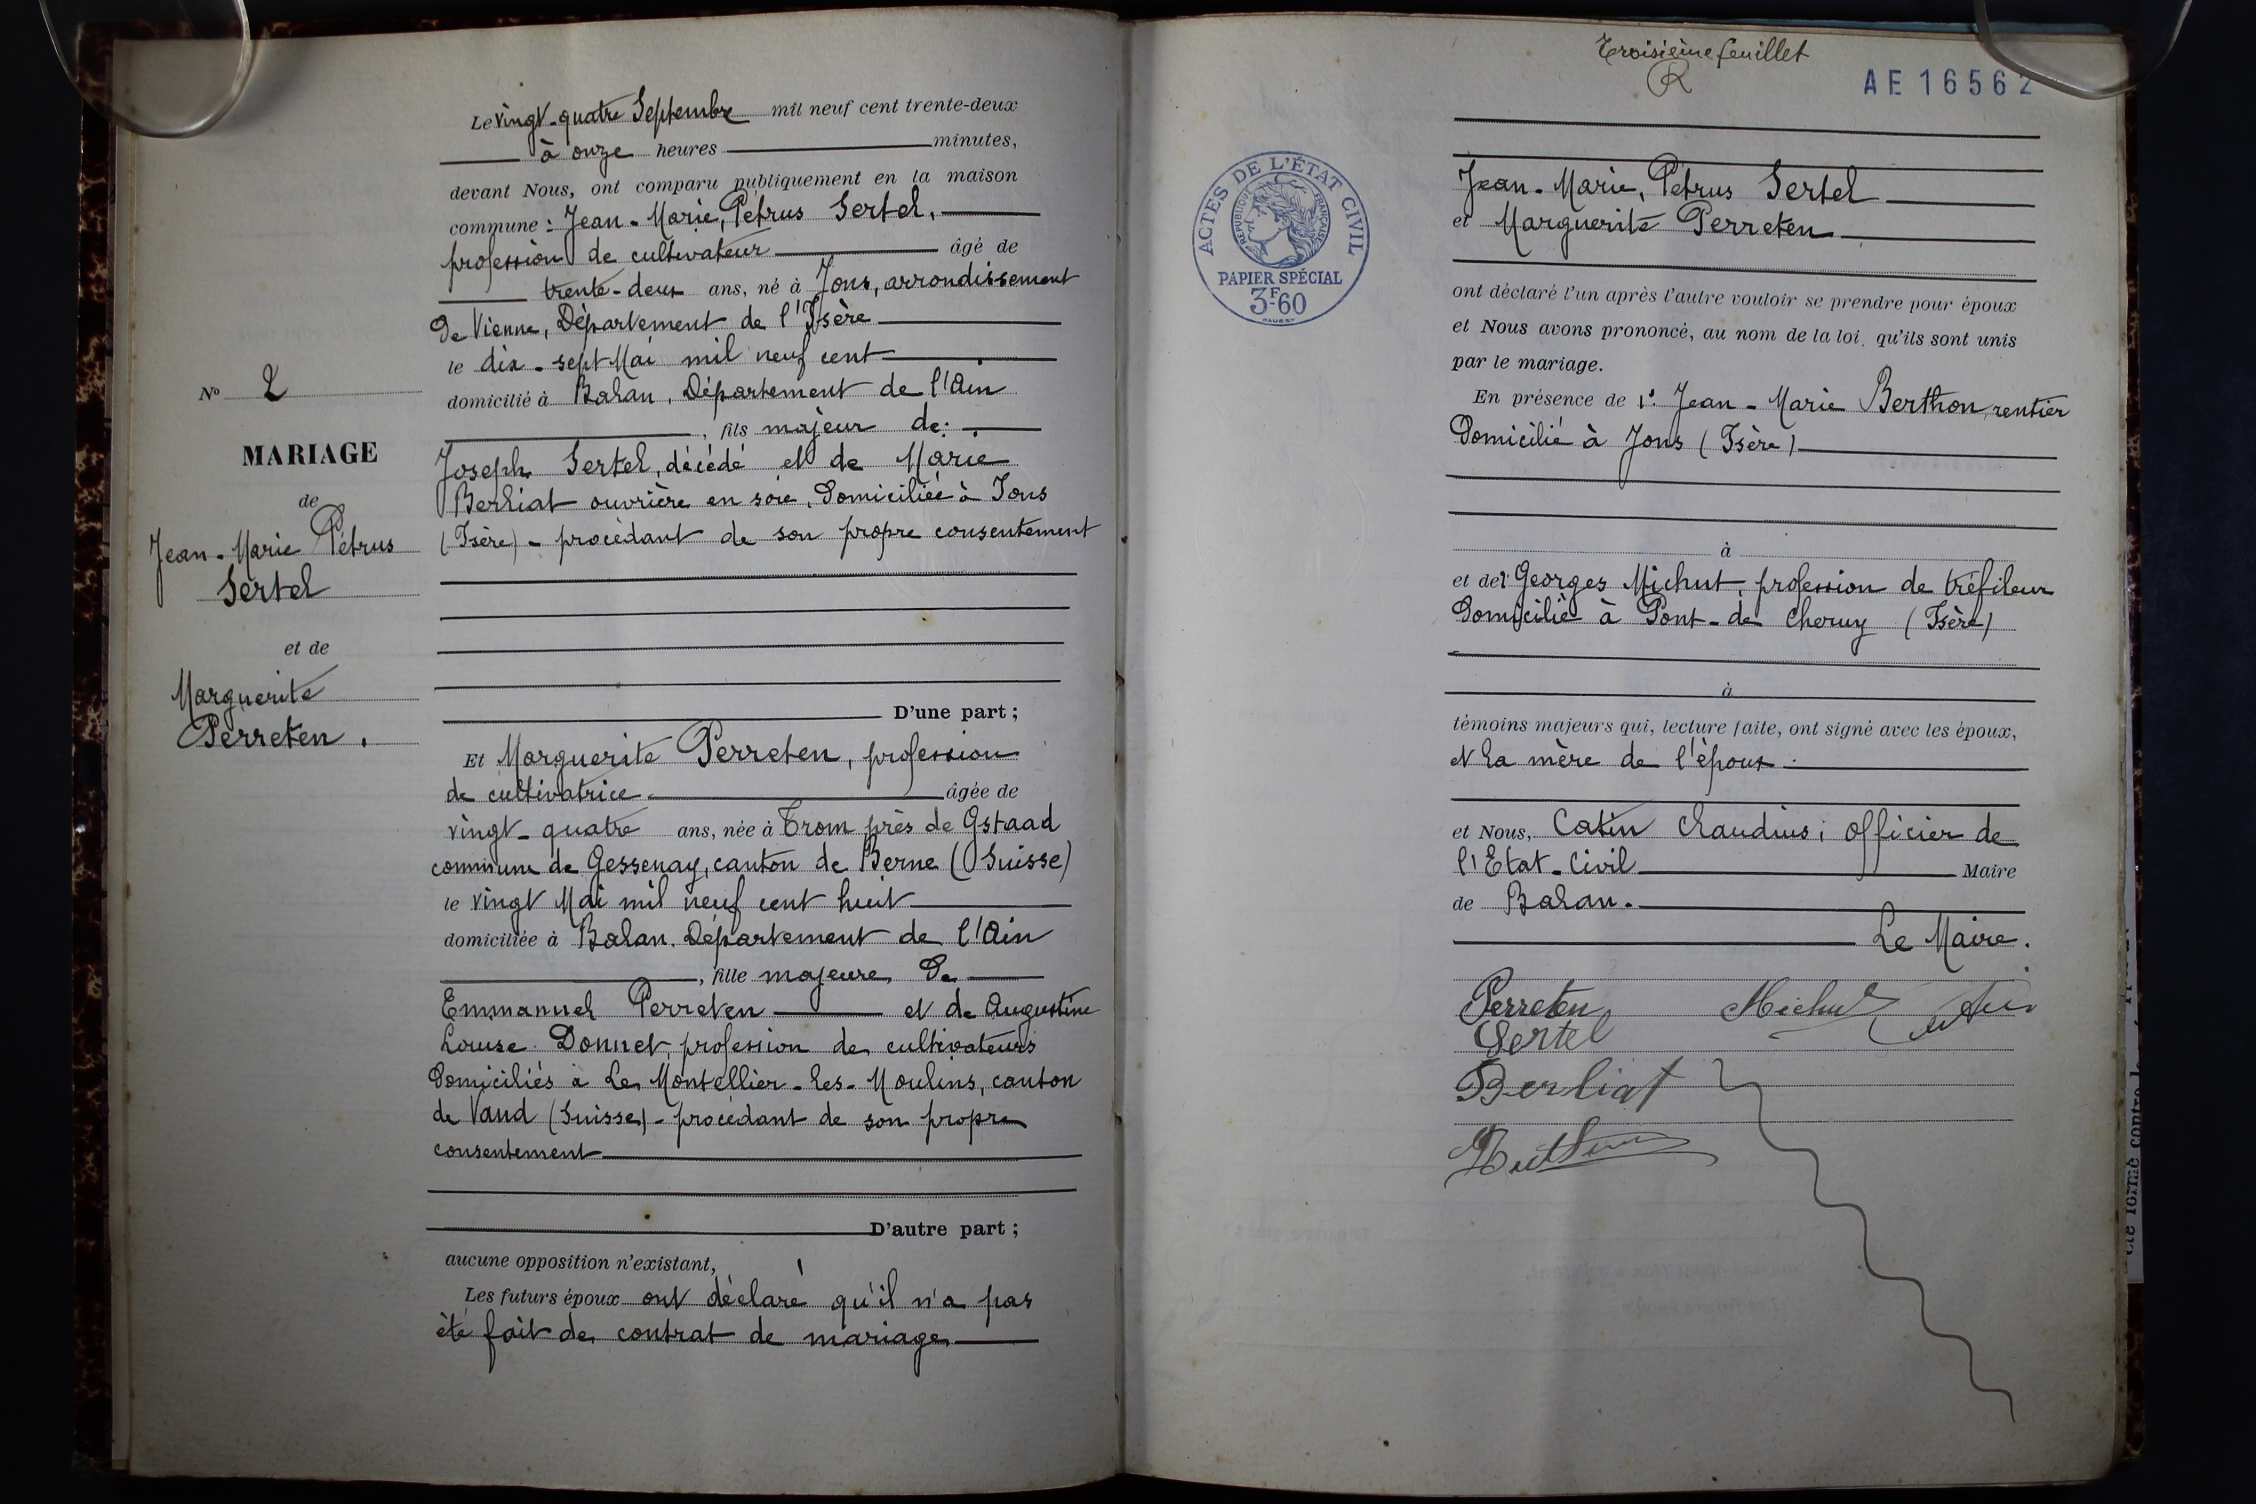 Le vingt-quatre Septembre mil neuf cent trente-deux
à onze heures minutes,
devant Nous, ont comparu publiquement en la maison
commune : Jean-Marie, Pétrus Sertel,
profession de cultivateur âgé de
trente-deux ans, né à Jons, arrondissement
de Vienne, Département de l'Isère
le dix-sept Mai mil neuf cent
domicilié à Balan, Département de l'Ain
, fils majeur de
Joseph Sertel, décédé et de Marie
Berliat ouvrière en soie, domiciliée à Jons
(Isère) - procédant de son propre consentement
D'une part ;
Et Marguerite Perreten, profession
de cultivatrice âgée de
vingt-quatre ans, née à Trom près de Gstaad
commune de Gessenay, canton de Berne (Suisse)
le vingt Mai mil neuf cent huit
domiciliée à Balan, Département de l'Ain
, fille majeure de
Emmanuel Perreten et de Augustine
Louise Donnet, profession de cultivateurs
domiciliés à Le Montellier-les-Moulins, canton
de Vaud (Suisse) - procédant de son propre
consentement
D'autre part ;
aucune opposition n'existant,
Les futurs époux ont déclaré qu'il n'a pas
été fait de contrat de mariage
No 2
MARIAGE
de
Jean-Marie Pétrus
Sertel
et de
Marguerite
Perreten.
Troisième feuillet
AE 16562
ACTES DE L'ÉTAT CIVIL
RÉPUBLIQUE FRANÇAISE
PAPIER SPÉCIAL
3F60
Jean-Marie, Pétrus Sertel
et Marguerite Perreten
ont déclaré l'un après l'autre vouloir se prendre pour époux
et Nous avons prononcé, au nom de la loi, qu'ils sont unis
par le mariage.
En présence de 1° Jean-Marie Berthon, rentier
domicilié à Jons (Isère)
à
et de 2° Georges Michut, profession de tréfileur
domicilié à Pont-de Cheruy (Isère)
à
témoins majeurs qui, lecture faite, ont signé avec les époux,
et la mère de l'époux.
et Nous, Catin Claudius, officier de
l'Etat-Civil Maire
de Balan.
Le Maire.
Perreten Michut Catin
Sertel
Berliat